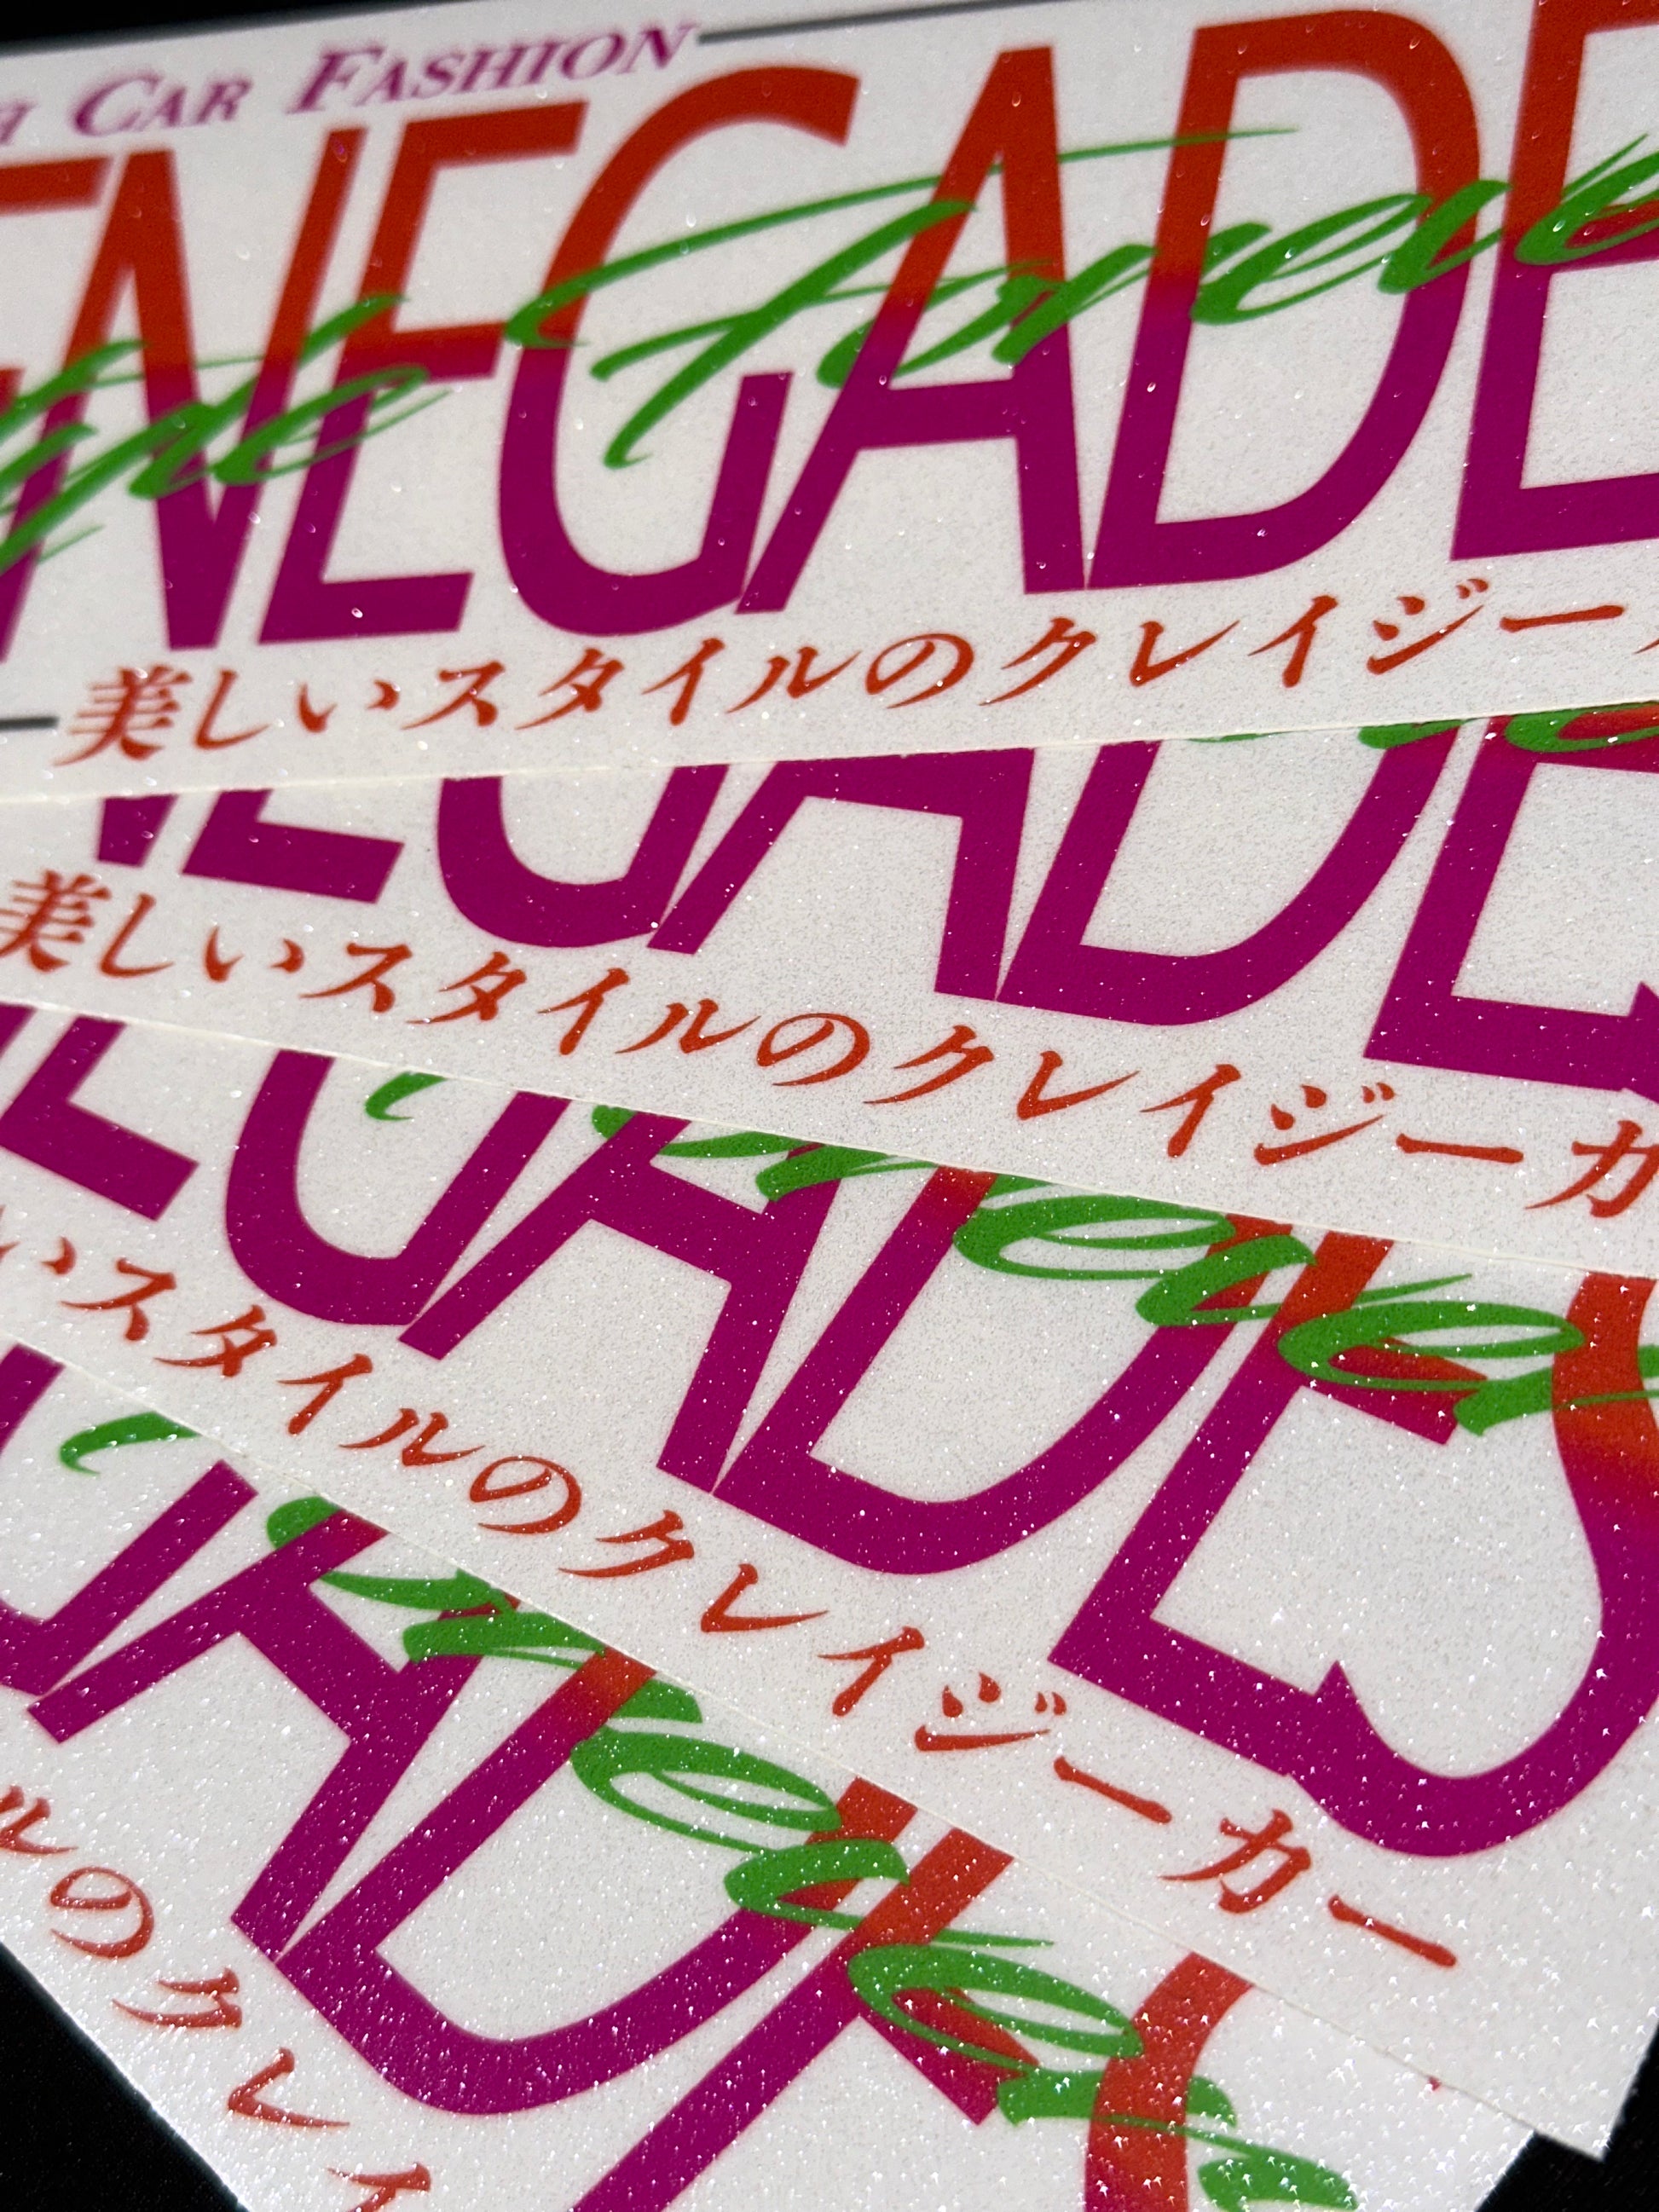 CAR FASHION
ENEGADE
Forever
美しいスタイルのクレイジー
EGADES
美しいスタイルのクレイジーカ
EGADES
いスタイルのクレイジーカー
GADES
ルのクレイ